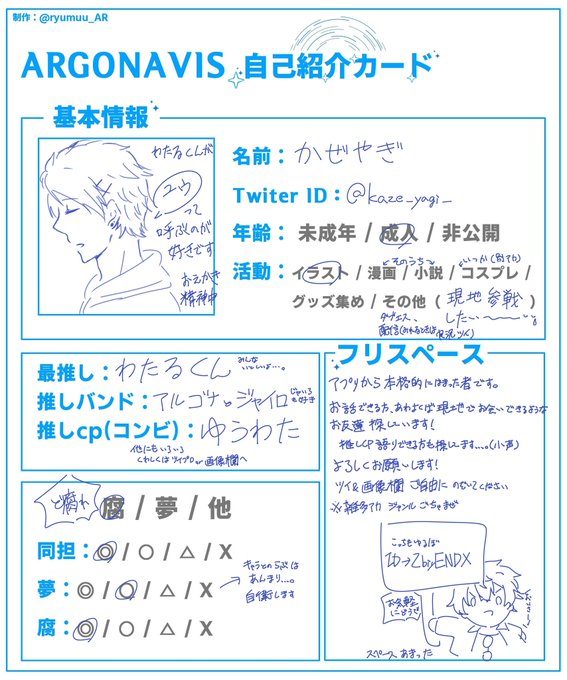 制作：@ryumuu_AR
ARGONAVIS 自己紹介カード
基本情報
わたるくんが
ユウ
って
呼ぶのが
好きです
おえかき
精神中
名前：かぜやぎ
Twiter ID：@kaze_yagi_
年齢： 未成年 / 成人 / 非公開
そのうち
いつか
活動：イラスト / 漫画 / 小説 / コスプレ /
グッズ集め / その他 ( 現地参戦 )
したい〜
最推し：わたるくん
みんな
いとしいよ…。
推しバンド：アルゴナとジャイロ
ジャイロ
も好き
推しcp(コンビ)：ゆうわた
他にもいろいろ
くわしくはツイプロor画像欄へ
フリスペース
アプリから本格的にはまった者です。
お話できる方、あわよくば現地でお会いできるような
お友達探しています！
推しCP語りできる方も探してます…。(小声)
よろしくお願いします！
ツイ&画像欄ご自由にのぞいてください
※雑多アカ ジャンルごちゃまぜ
ど腐れ
腐 / 夢 / 他
同担：◎ / ○ / △ / X
夢：◎ / ○ / △ / X
キャラとのらぶは
あんまり…。
自衛します
腐：◎ / ○ / △ / X
お気軽
にどうぞ
スペースあまった